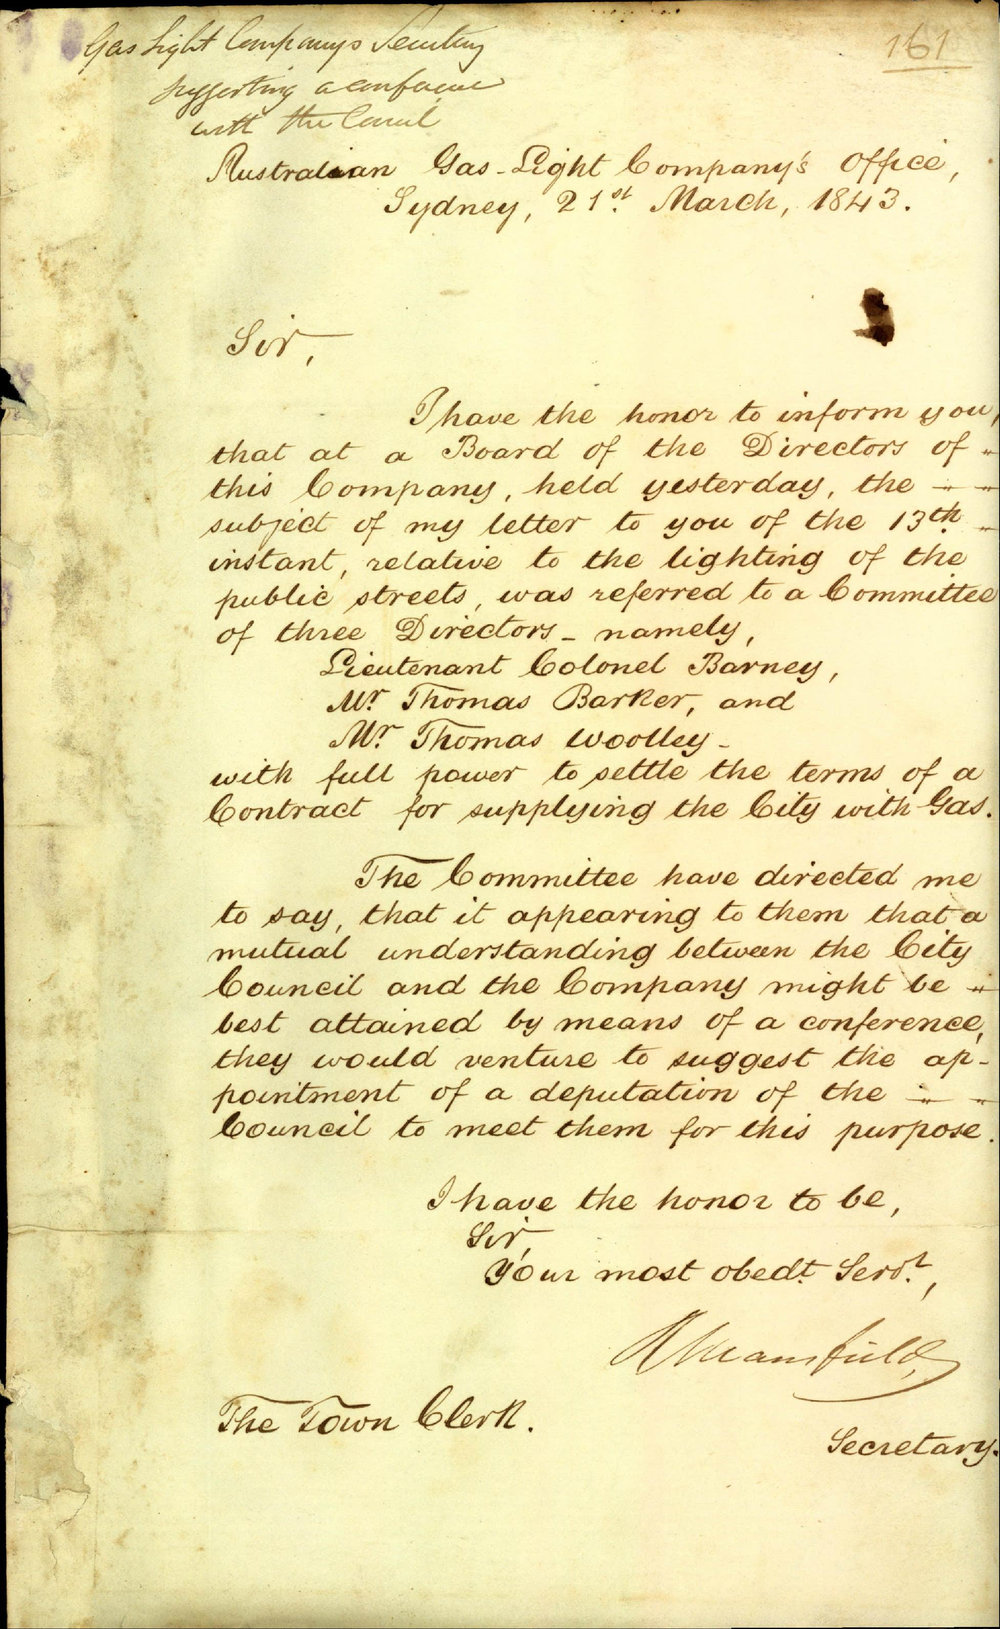 Gas Light Company's Secretary
suggesting a conference
with the Council
161
Australian Gas-Light Company's Office,
Sydney, 21st. March, 1843.
Sir,
I have the honor to inform you,
that at a Board of the Directors of
this Company, held yesterday, the
subject of my letter to you of the 13th.
instant, relative to the lighting of the
public streets, was referred to a Committee
of three Directors - namely,
Lieutenant Colonel Barney,
Mr. Thomas Barker, and
Mr. Thomas Woolley -
with full power to settle the terms of a
Contract for supplying the City with Gas.
The Committee have directed me
to say, that it appearing to them that a
mutual understanding between the City
Council and the Company might be
best attained by means of a conference,
they would venture to suggest the ap-
pointment of a deputation of the
Council to meet them for this purpose.
I have the honor to be,
Sir,
Your most obedt. Servt.,
R Mansfield,
The Town Clerk.
Secretary.